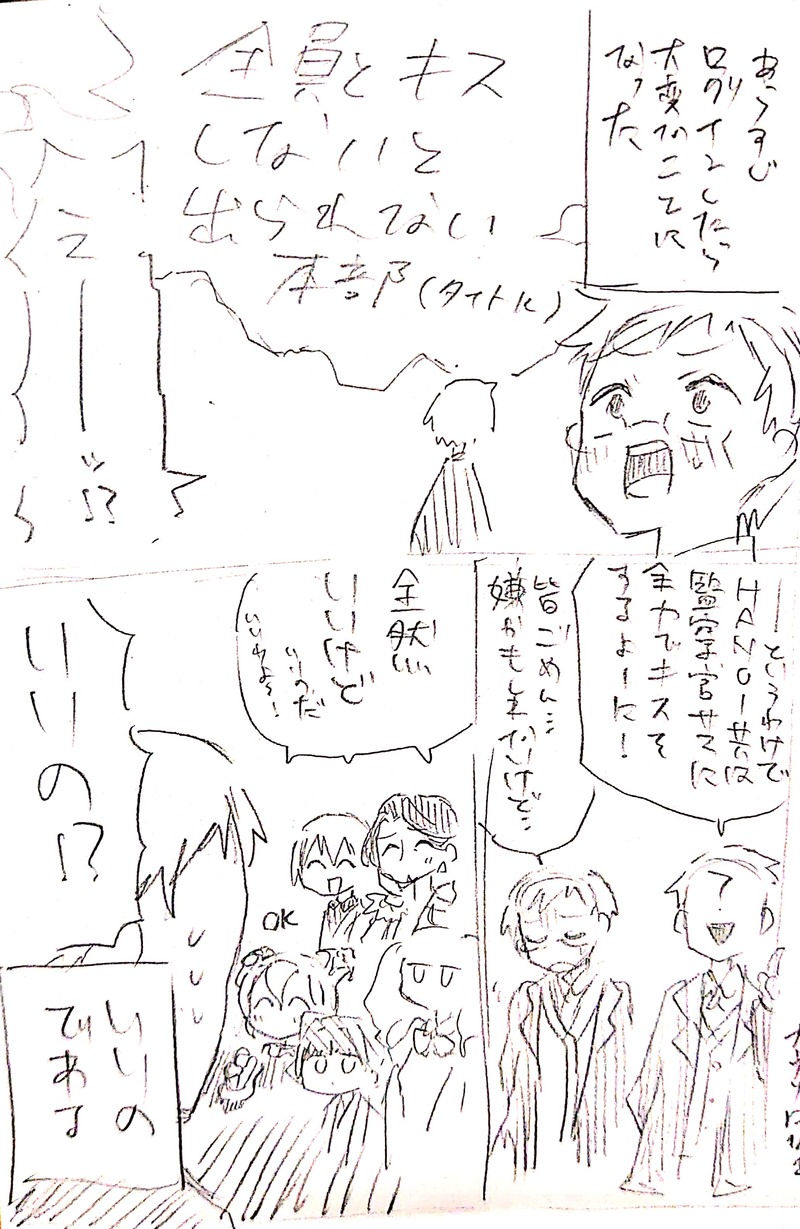 あらすじ
ログインしたら
大変なことに
なった
全員とキス
しないと
出られない
本部(タイトル)
え
ーーっ!?
ーというわけで
HANOI共は
監察官サマに
全力でキスを
するよーに!
皆ごめん…
嫌かもしれないけど…
全然
いいけど
いいのだ
いいわよ〜!
OK
いいの!?
いいの
である